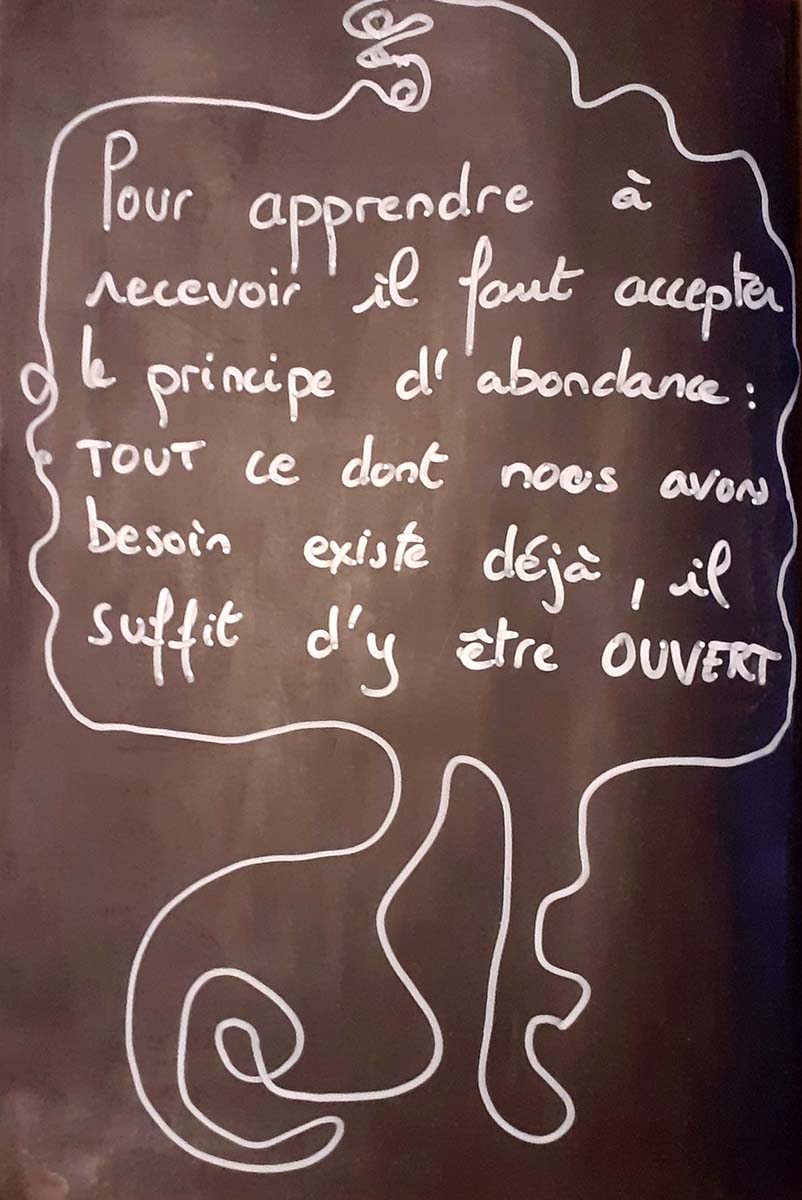 Pour apprendre à
recevoir il faut accepter
le principe d'abondance :
TOUT ce dont nous avons
besoin existe déjà, il
suffit d'y être OUVERT